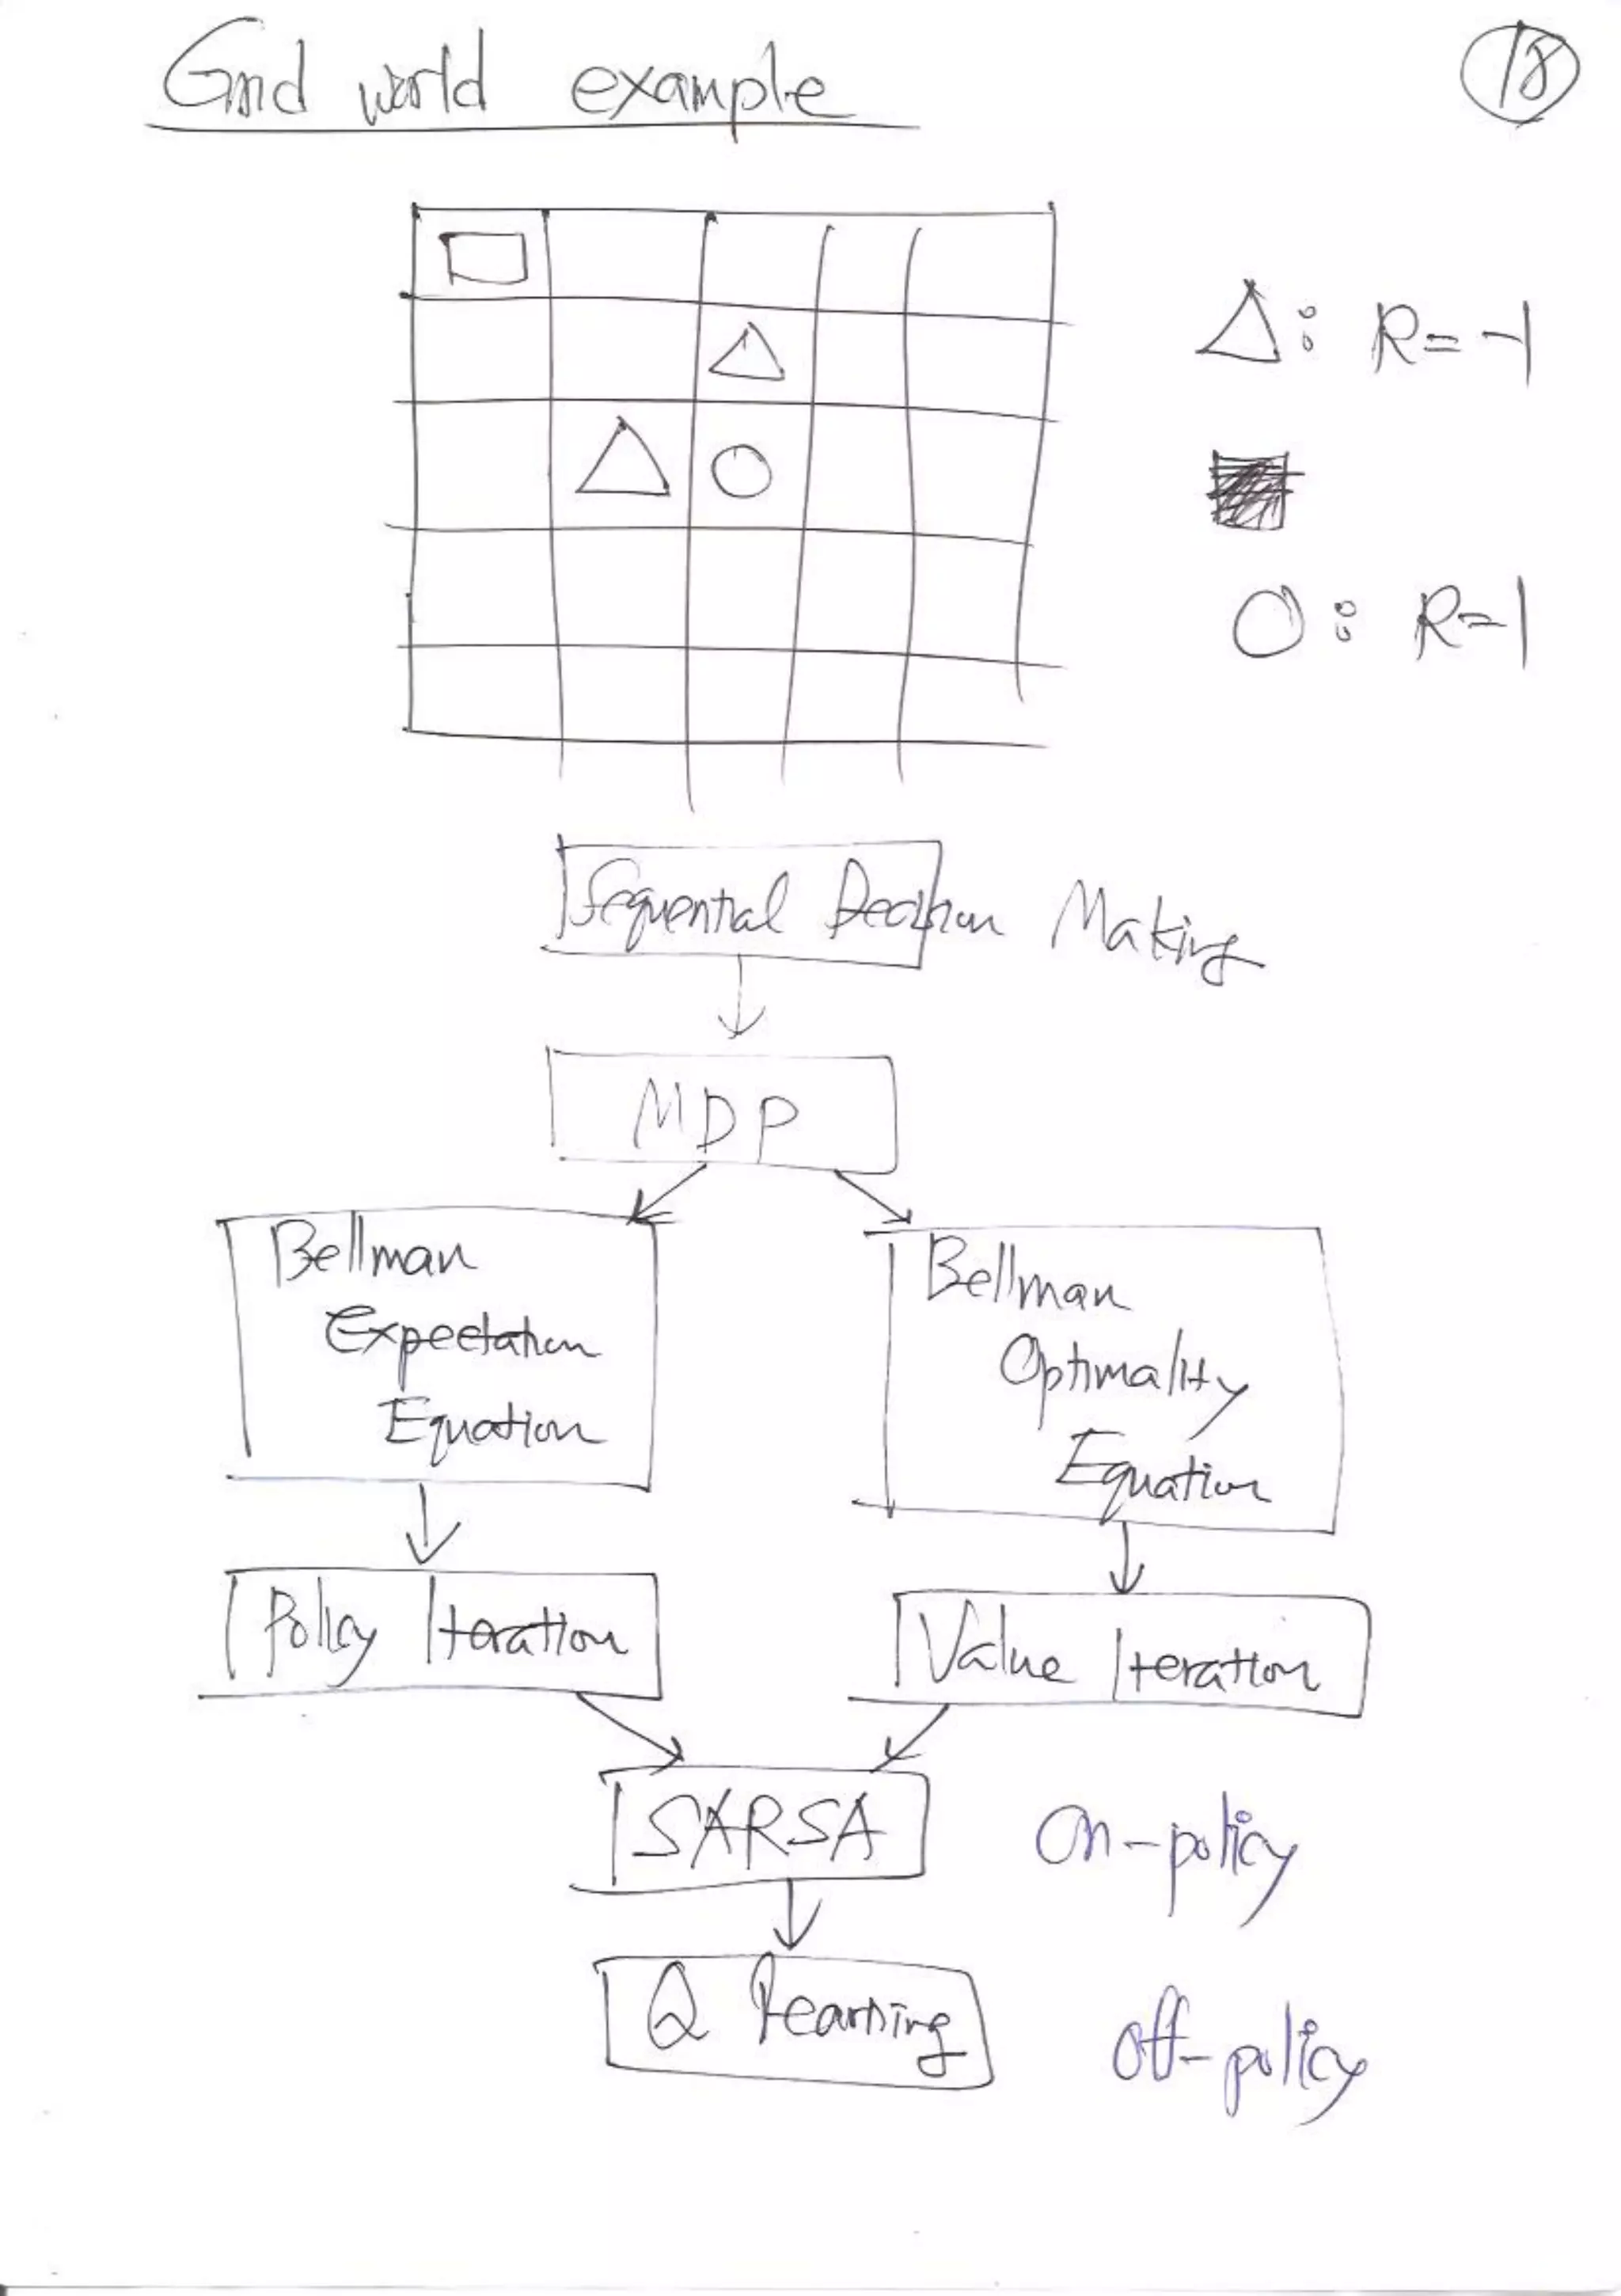 Grid world example
18
△: R = -1
○: R = 1
Sequential Decision Making
MDP
Bellman
Expectation
Equation
Bellman
Optimality
Equation
Policy Iteration
Value Iteration
SARSA
On-policy
Q Learning
Off-policy